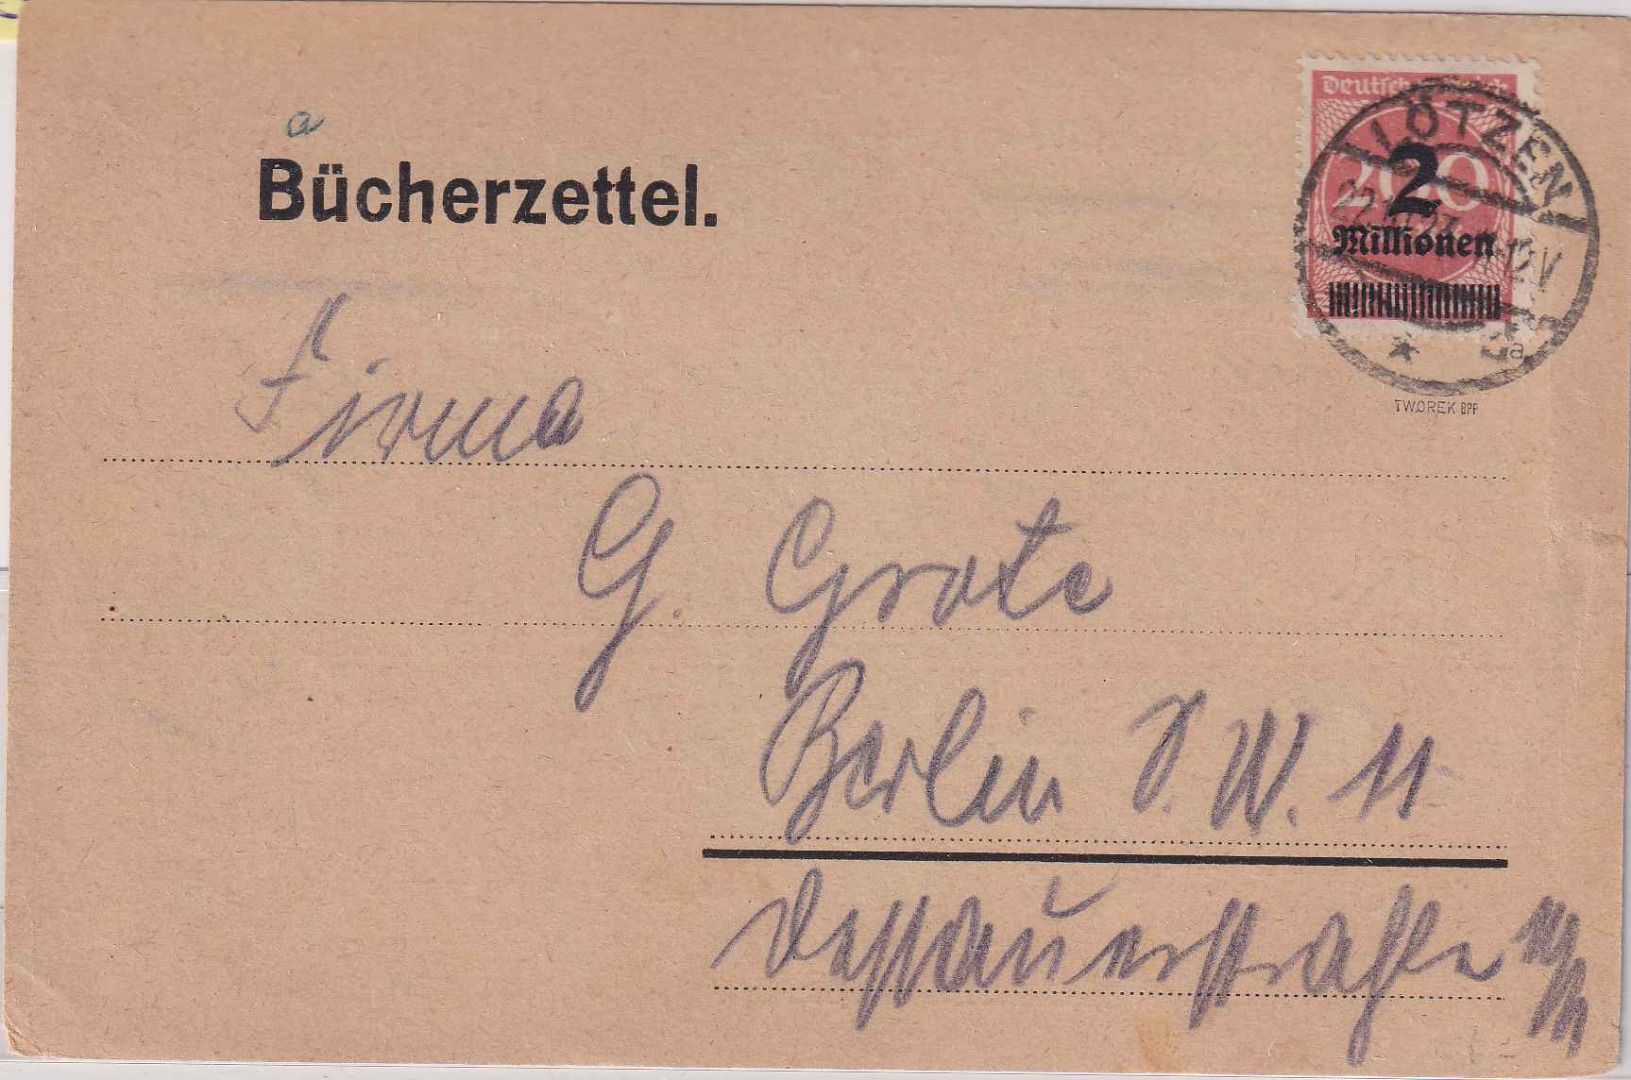 a
Bücherzettel.
Deutsches Reich
200
2
Millionen
LÖTZEN
22. 23. 11-12 V
a
TWOREK BPP
Firma
G. Grote
Berlin S. W. 11
Dessauerstraße